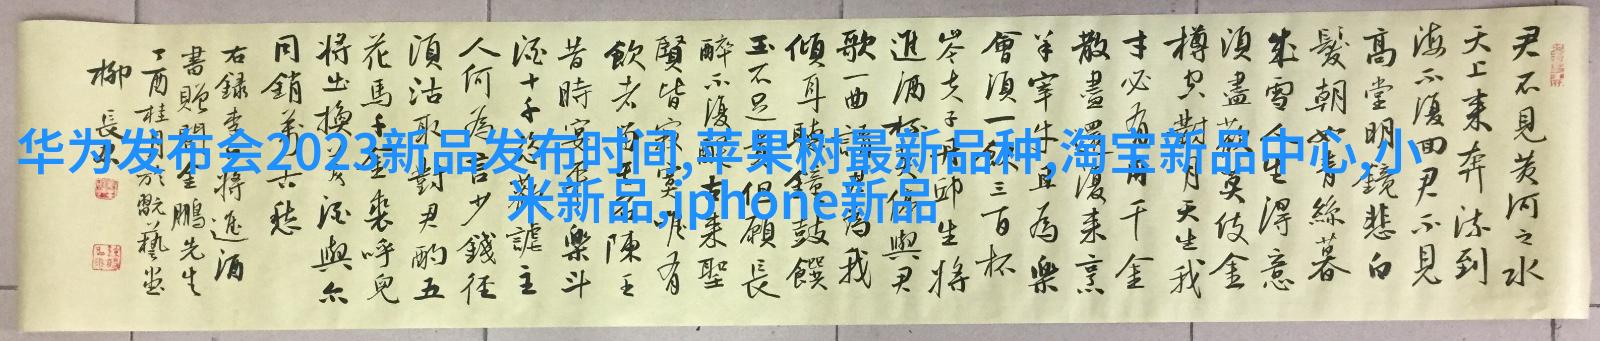 君不見黄河之水
天上来奔流到
海不復回君不見
高堂明鏡悲白
髮朝如青絲暮
成雪人生得意
須盡歡莫使金
樽空對月天生我
才必有用千金
散盡還復来烹
羊宰牛且為樂
會須一飲三百杯
岑夫子丹邱生將
進酒杯莫停與君
歌一曲請君為我
傾耳聽鐘鼓饌
玉不足貴但願長
醉不復醒古来聖
賢皆寂寞唯有
飲者留其名陳王
昔時宴平樂斗
酒十千恣歡謔主
人何為言少錢径
須沽取對君酌五
花馬千金裘呼兒
將出換美酒與尔
同銷萬古愁
右録李白將進酒
書贈金鵬先生
丁酉桂月於翫藝堂
柳長
华为发布会2023新品发布时间,苹果树最新品种,淘宝新品中心,小
米新品,iphone新品